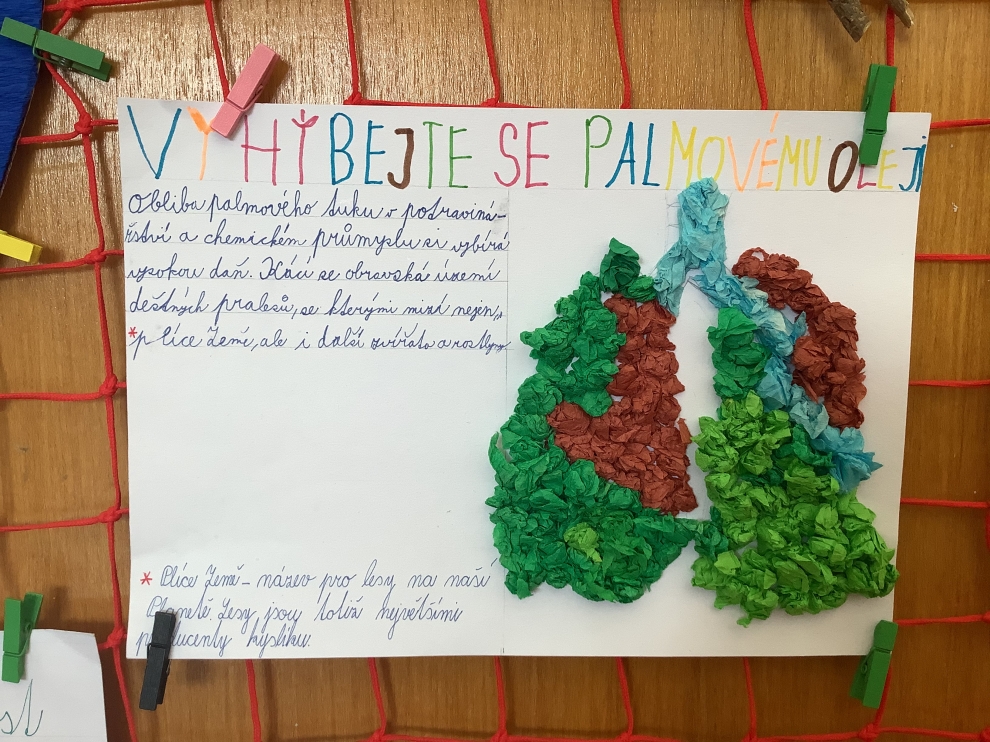 VYHÝBEJTE SE PALMOVÉMU OLEJI
Obliba palmového tuku v potraviná-
řství a chemickém průmyslu si vybírá
vysokou daň. Kácí se obrovská území
deštných pralesů, se kterými mizí nejen,,
*plíce Země, ale i další zvířata a rostliny.
* Plíce Země - název pro lesy na naší
Planetě. Lesy jsou totiž největšími
producenty kyslíku.
st